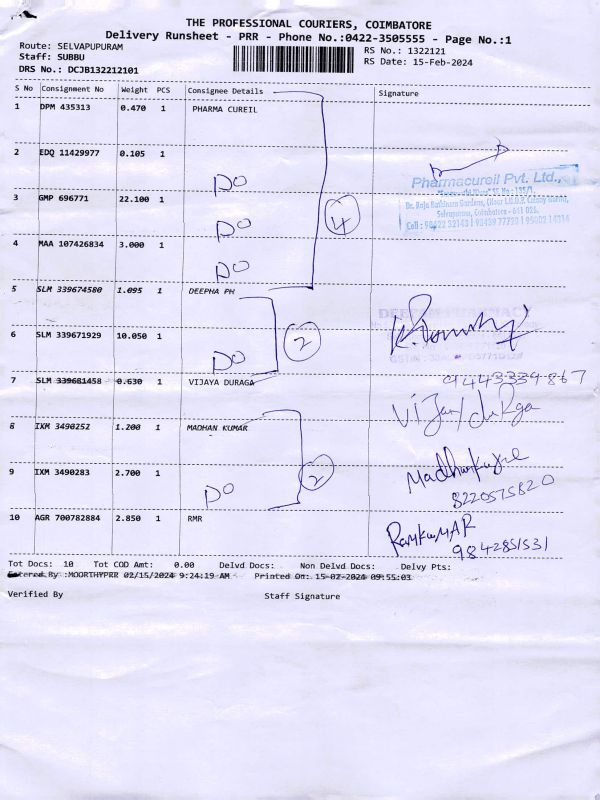 THE PROFESSIONAL COURIERS, COIMBATORE
Delivery Runsheet - PRR - Phone No.:0422-3505555 - Page No.:1
Route: SELVAPUPURAM
RS No.: 1322121
Staff: SUBBU
RS Date: 15-Feb-2024
DRS No.: DCJB132212101
S No Consignment No Weight PCS Consignee Details Signature
1 DPM 435313 0.470 1 PHARMA CUREIL
2 EDQ 11429977 0.105 1 DO
Pharmacureil Pvt. Ltd.,
3 GMP 696771 22.100 1 DO
4
Selvapuram, Coimbatore - 641 026.
4 MAA 107426834 3.000 1 DO
5 SLM 339674580 1.095 1 DEEPHA PH
6 SLM 339671929 10.050 1 DO
2
9443339867
7 SLM 339681458 0.630 1 VIJAYA DURAGA
8 IXM 3490252 1.200 1 MADHAN KUMAR
9 IXM 3490283 2.700 1 DO
2
8220575820
10 AGR 700782884 2.850 1 RMR
RAMKUMAR
9842851531
Tot Docs: 10 Tot COD Amt: 0.00 Delvd Docs: Non Delvd Docs: Delvy Pts:
Entered By :MOORTHYPRR 02/15/2024 9:24:19 AM Printed On: 15-02-2024 09:55:03
Verified By Staff Signature